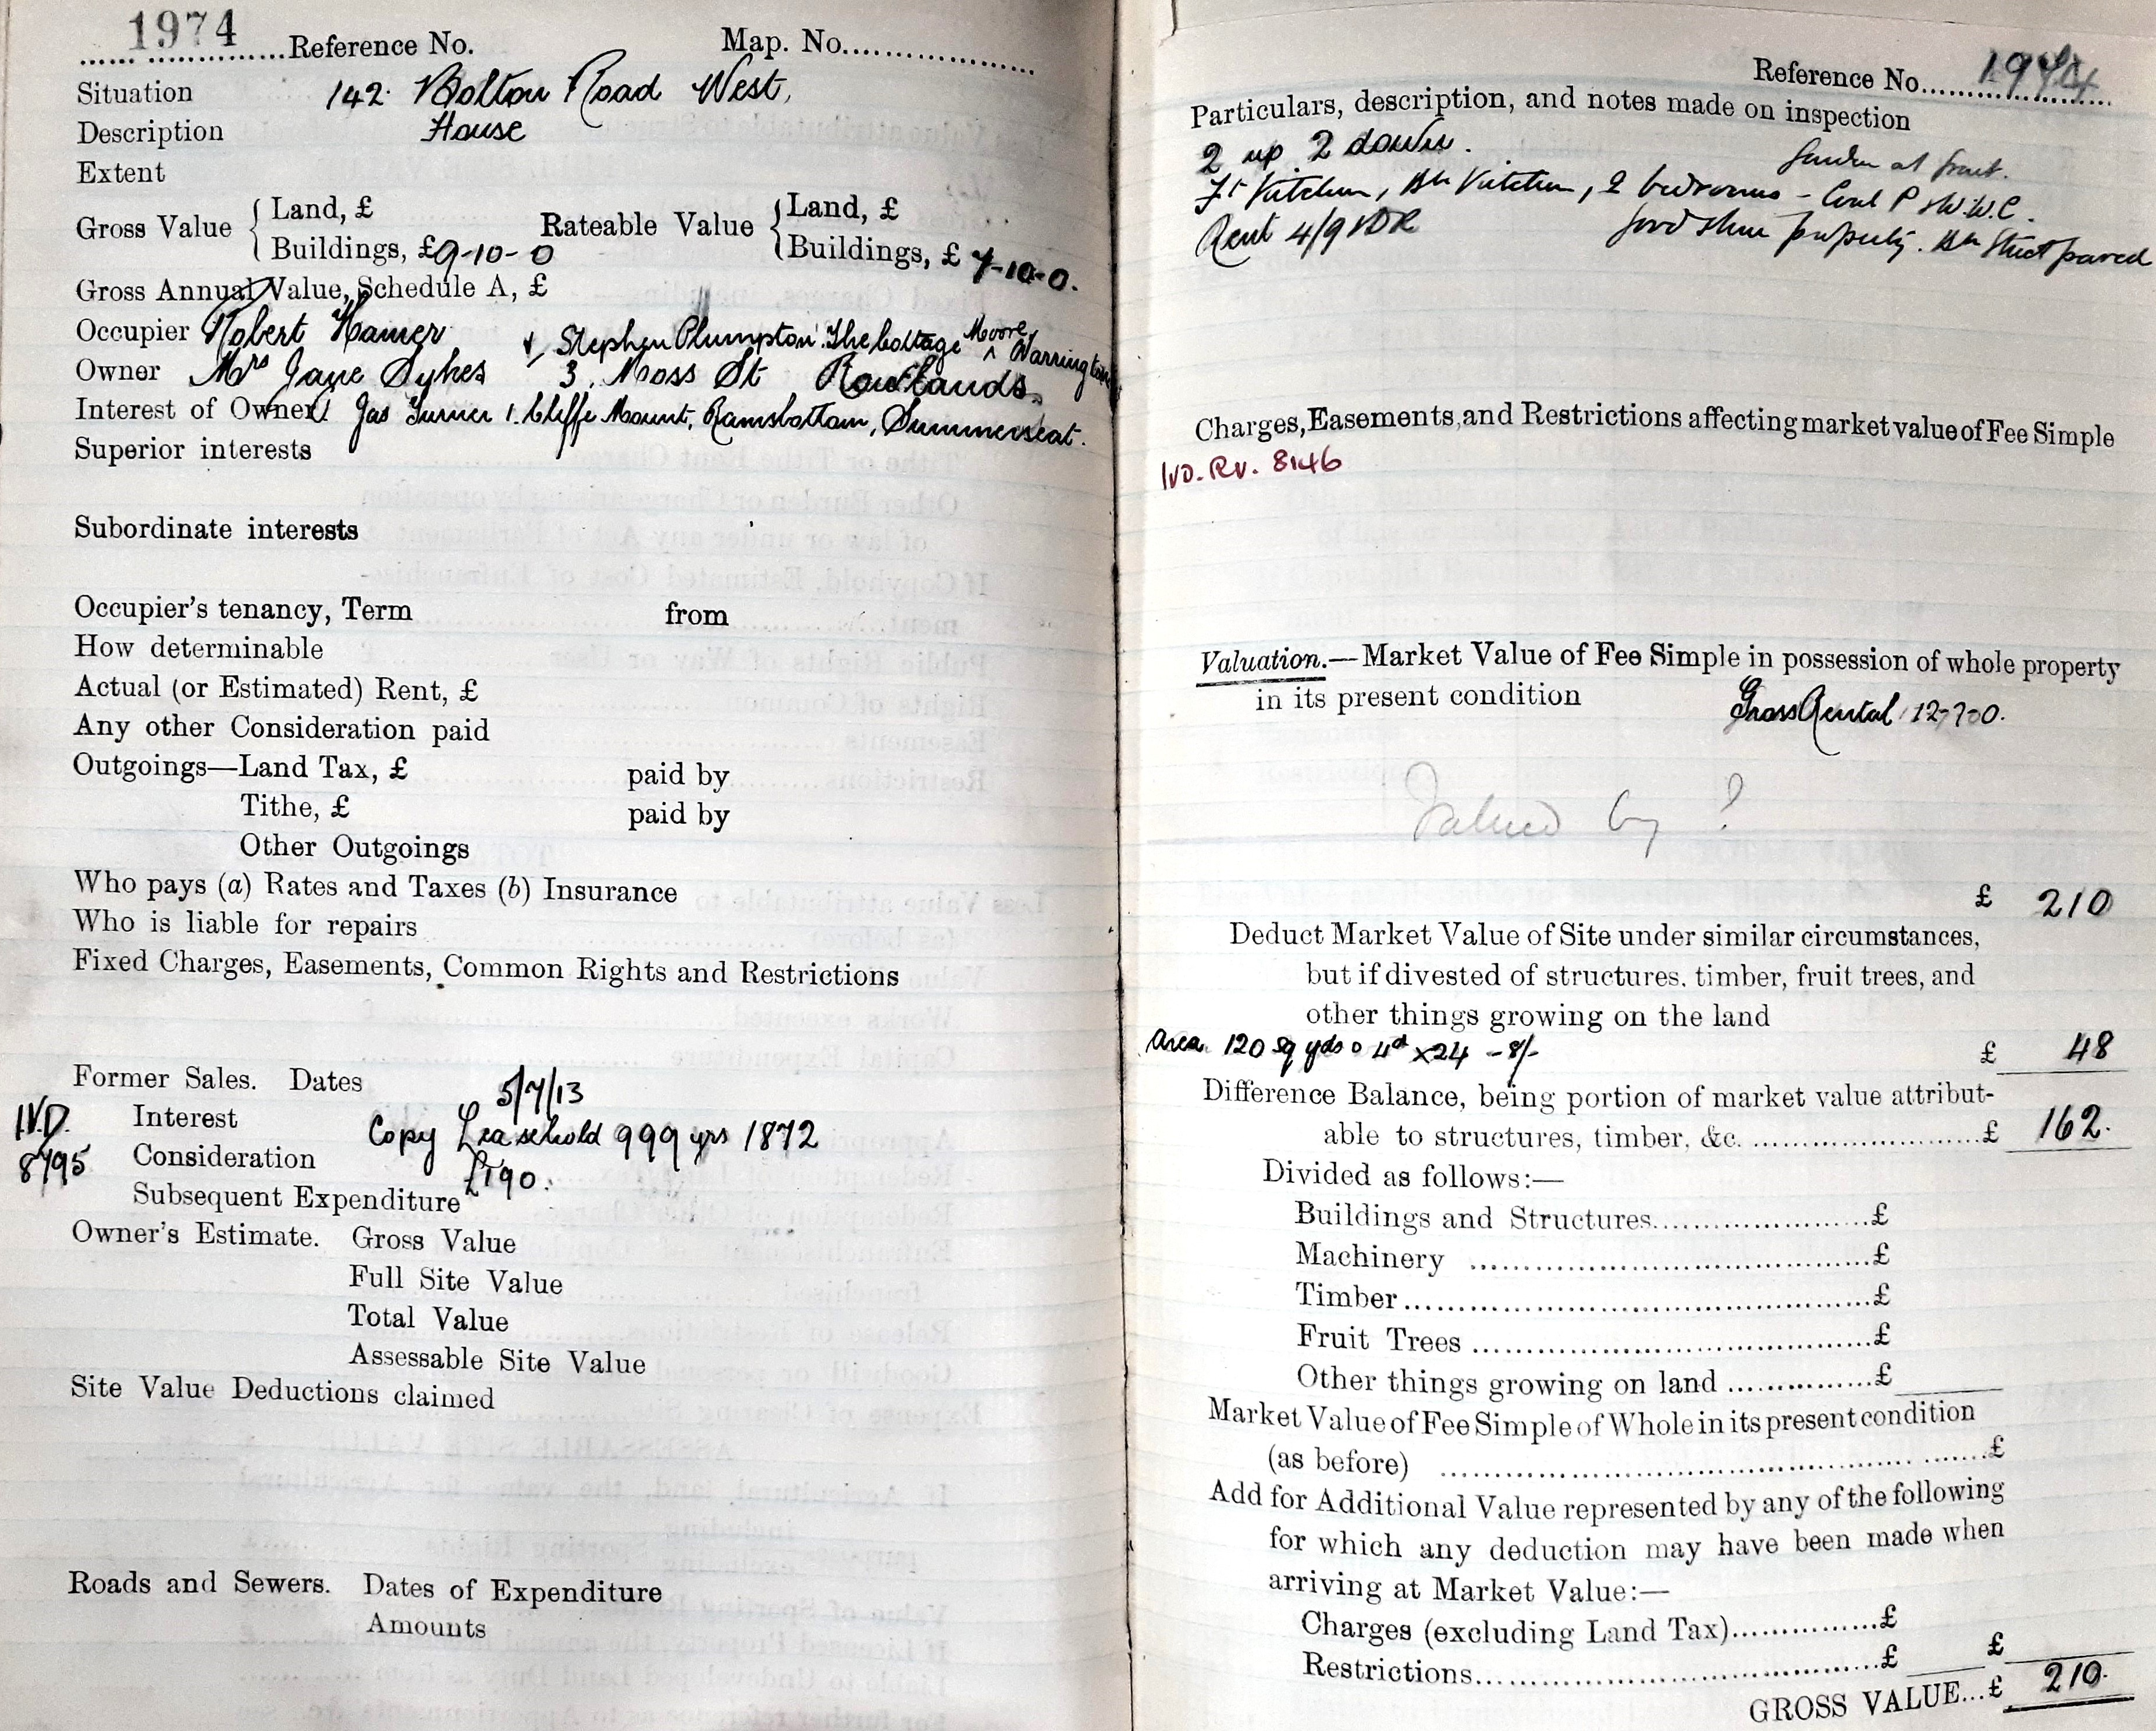 1974 Reference No. Map. No.
Situation 142 Bolton Road West,
Description House
Extent
Gross Value { Land, £ Rateable Value { Land, £
Buildings, £ 9-10-0 Buildings, £ 7-10-0.
Gross Annual Value, Schedule A, £
Occupier Robert Hamer & Stephen Plumpton The Cottage Moore Warrington
Owner Mrs Jane Sykes 3. Moss St Rowlands.
Interest of Owner Jas Turner 1. Cliffe Mount, Ramsbottom, Summerseat.
Superior interests
Subordinate interests
Occupier's tenancy, Term from
How determinable
Actual (or Estimated) Rent, £
Any other Consideration paid
Outgoings—Land Tax, £ paid by
Tithe, £ paid by
Other Outgoings
Who pays (a) Rates and Taxes (b) Insurance
Who is liable for repairs
Fixed Charges, Easements, Common Rights and Restrictions
Former Sales. Dates 5/7/13
I.V.D. Interest Copy Leasehold 999 yrs 1872
8795 Consideration £190.
Subsequent Expenditure
Owner's Estimate. Gross Value
Full Site Value
Total Value
Assessable Site Value
Site Value Deductions claimed
Roads and Sewers. Dates of Expenditure
Amounts
Reference No. 1974
Particulars, description, and notes made on inspection
2 up 2 down. Garden at front.
Ft Kitchen, Bk Kitchen, 2 bedrooms - Coal P & W.W.C.
Rent 4/9 good stone property. Bk Street paved
Charges, Easements, and Restrictions affecting market value of Fee Simple
IVD. RV. 8146
Valuation.—Market Value of Fee Simple in possession of whole property
in its present condition Gross Rental 12-7-0.
Valued by ?
£ 210
Deduct Market Value of Site under similar circumstances,
but if divested of structures, timber, fruit trees, and
other things growing on the land
Area 120 sq yds @ 4d x 24 - 8/- £ 48
Difference Balance, being portion of market value attribut-
able to structures, timber, &c. £ 162.
Divided as follows:—
Buildings and Structures £
Machinery £
Timber £
Fruit Trees £
Other things growing on land £
Market Value of Fee Simple of Whole in its present condition
(as before) £
Add for Additional Value represented by any of the following
for which any deduction may have been made when
arriving at Market Value:—
Charges (excluding Land Tax) £
Restrictions £ £
GROSS VALUE... £ 210.